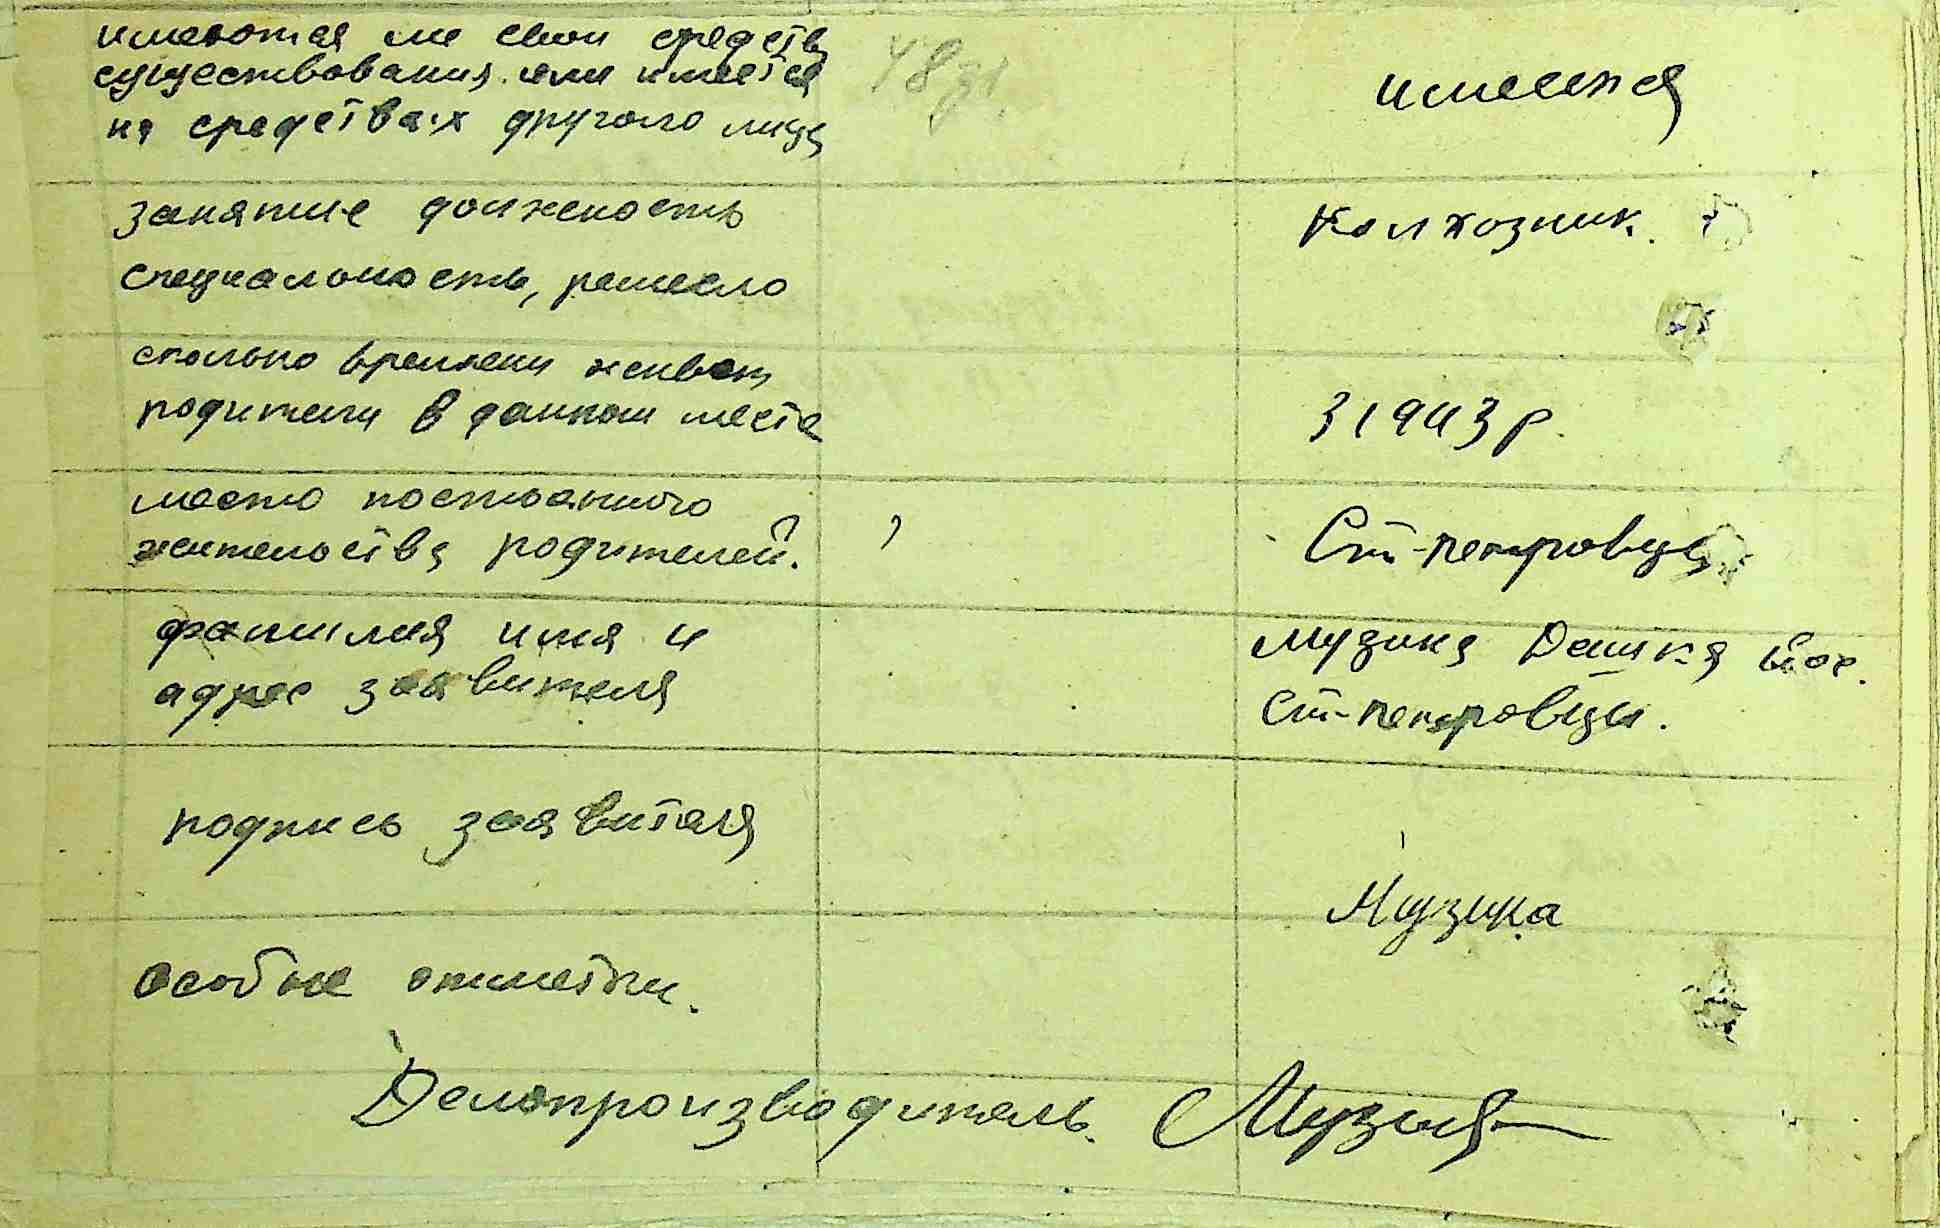 имеются ли свои средств
существования или имеется
на средствах другого лица
имеется
занятие должность
специальность, ремесло
колхозник.
сколько времени живет
родители в данном месте
З 1943 р.
место постоянного
жительства родителей.
Ст-петровцы
фамилия имя и
адрес заявителя
Музика Йос.
Ст-петровцы.
подпись заявителя
Музика
особые отметки.
Делопроизводитель. Музыка